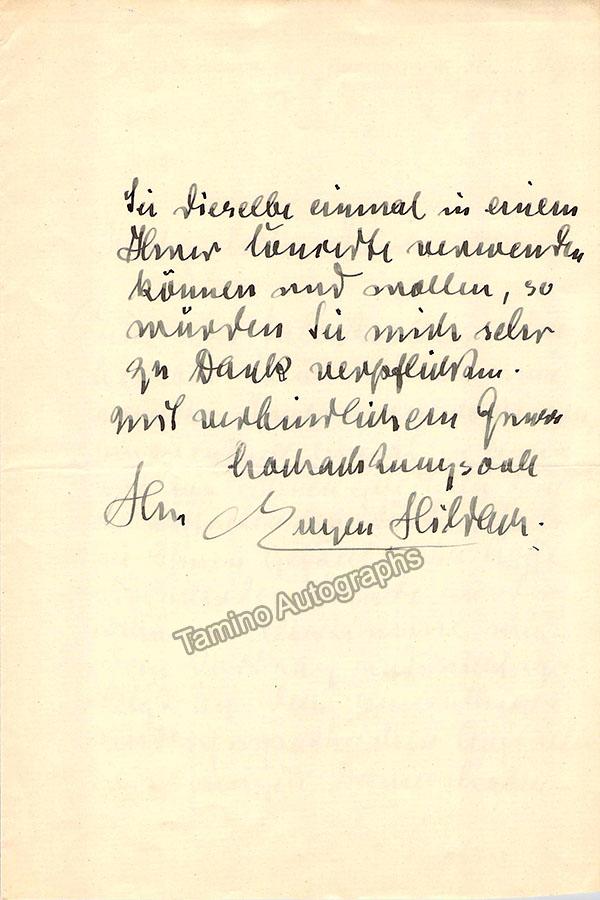 Sie dieselbe einmal in einem
Ihrer Concerte verwenden
können und wollen, so
würden Sie mich sehr
zu Dank verpflichten.
mit verbindlichem Gruss
hochachtungsvoll
Ihr Eugen Hildach.
Tamino Autographs